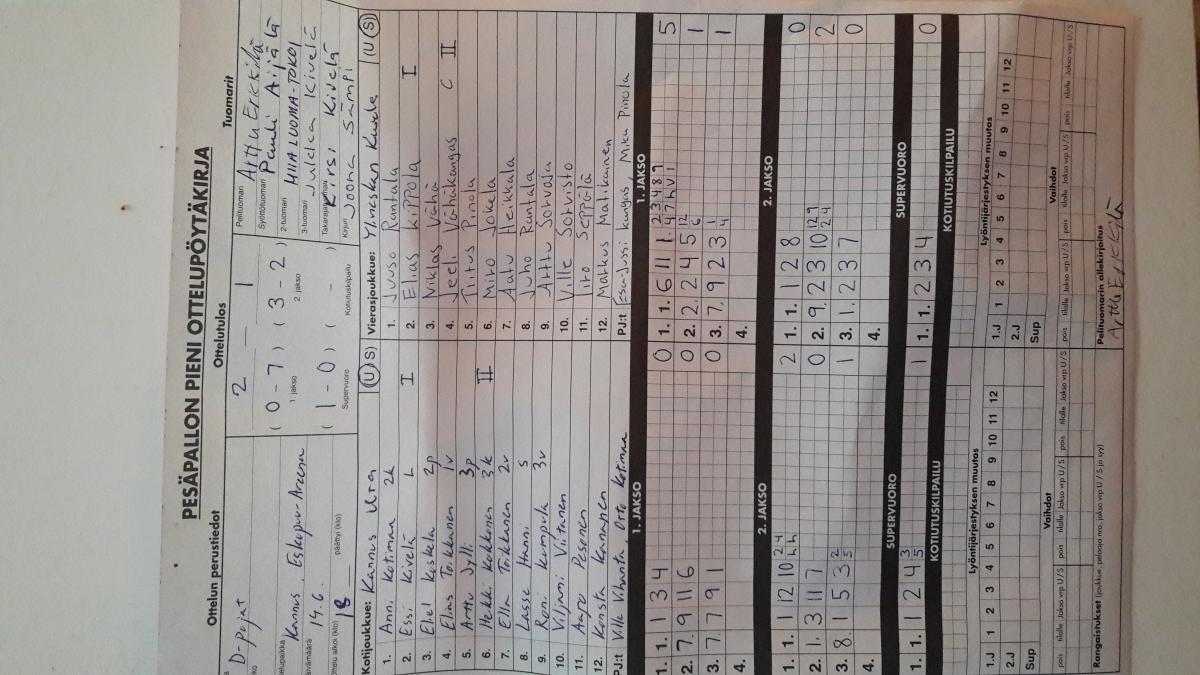 PESÄPALLON PIENI OTTELUPÖYTÄKIRJA
Ottelun perustiedot
D-Pojat
Kannus, Eskopuu-Areena
14.6
Ottelu alkoi (klo) 18 päättyi (klo)
Ottelutulos
2 - 1
( 0 - 7 ) ( 3 - 2 )
1. jakso 2. jakso
( 1 - 0 ) ( - )
Supervuoro Kotiutuskilpailu
Tuomarit
Pelituomari Arttu Erkkilä
Syöttötuomari Pauli Äijälä
2-tuomari HIIA LUOMA-TOKOI
3-tuomari Jukka Kivelä
Takarajatuomari Kirsi Kivelä
Kirjuri Joona Sämpi
Kotijoukkue: Kannus Ura (U) S)
1. Anni Kotimaa 2k
2. Essi Kivelä L I
3. Eliel Koskela 2p
4. Elias Toikkanen 1v
5. Arttu Jylli 3p
6. Heikki Kokkonen 3k II
7. Ella Toikkanen 2v
8. Lasse Hanni S
9. Roni Kumpula 3v
10. Viljami Viitanen
11. Aapo Pesonen
12. Konsta Kananen
PJ:t Ville Vihanta, Otto Kotimaa
Vierasjoukkue: Ylivieskan Kuula (U (S)
1. Juuso Rantala
2. Elias Kippola I
3. Niklas Vähä
4. Jeeli Vähäkangas C II
5. Titus Pinola
6. Miro Jokela
7. Aatu Heikkala
8. Juho Rantala
9. Arttu Sorvoja
10. Ville Sorvisto
11. Iiro Seppälä
12. Markus Matikainen
PJ:t Esa-Jussi Kangas, Miku Pinola
1. JAKSO
1. 1. 1 3 4 0
2. 7. 9 11 6 0
3. 7. 7 9 1 0
4.
2. JAKSO
1. 1. 1 12 10 2 4 h h 2
2. 1. 3 11 7 0
3. 8. 1 5 3 2 5 1
4.
SUPERVUORO
1. 1. 1 2 4 3 5 1
KOTIUTUSKILPAILU
1. JAKSO
1. 1. 6 11 1. 2 3 4 8 9 4 7 h v 1 5
2. 2. 2 4 5 12 6 1
3. 7. 9 2 3 1 4 1
4.
2. JAKSO
1. 1. 1 2 8 0
2. 9. 2 3 10 12 9 2 4 2
3. 1. 2 3 7 0
4.
SUPERVUORO
1. 1. 2 3 4 0
KOTIUTUSKILPAILU
Lyöntijärjestyksen muutos
1 2 3 4 5 6 7 8 9 10 11 12
1.J
2.J
Sup
Vaihdot
pois tilalle Jakso vrp U / S pois tilalle Jakso vrp U / S
Rangaistukset (joukkue, pelaaja nro, jakso vrp U / S ja syy)
Lyöntijärjestyksen muutos
1 2 3 4 5 6 7 8 9 10 11 12
1.J
2.J
Sup
Vaihdot
pois tilalle Jakso vrp U / S pois tilalle Jakso vrp U / S
Pelituomarin allekirjoitus
Arttu Erkkilä